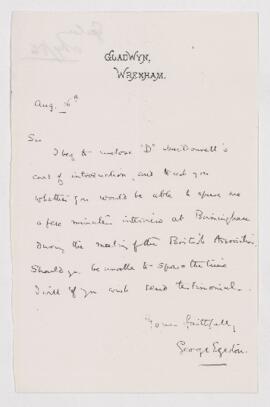 GLADWYN,
WREXHAM.
Aug. 16th
Sir
I beg to enclose "Dr" MacDowell's
card of introduction, and to ask you
whether you would be able to spare me
a few minutes interview at Birmingham
during the meeting of the British Association.
Should you be unable to spare the time
I will if you wish send testimonials.
Yours faithfully,
George Egerton.